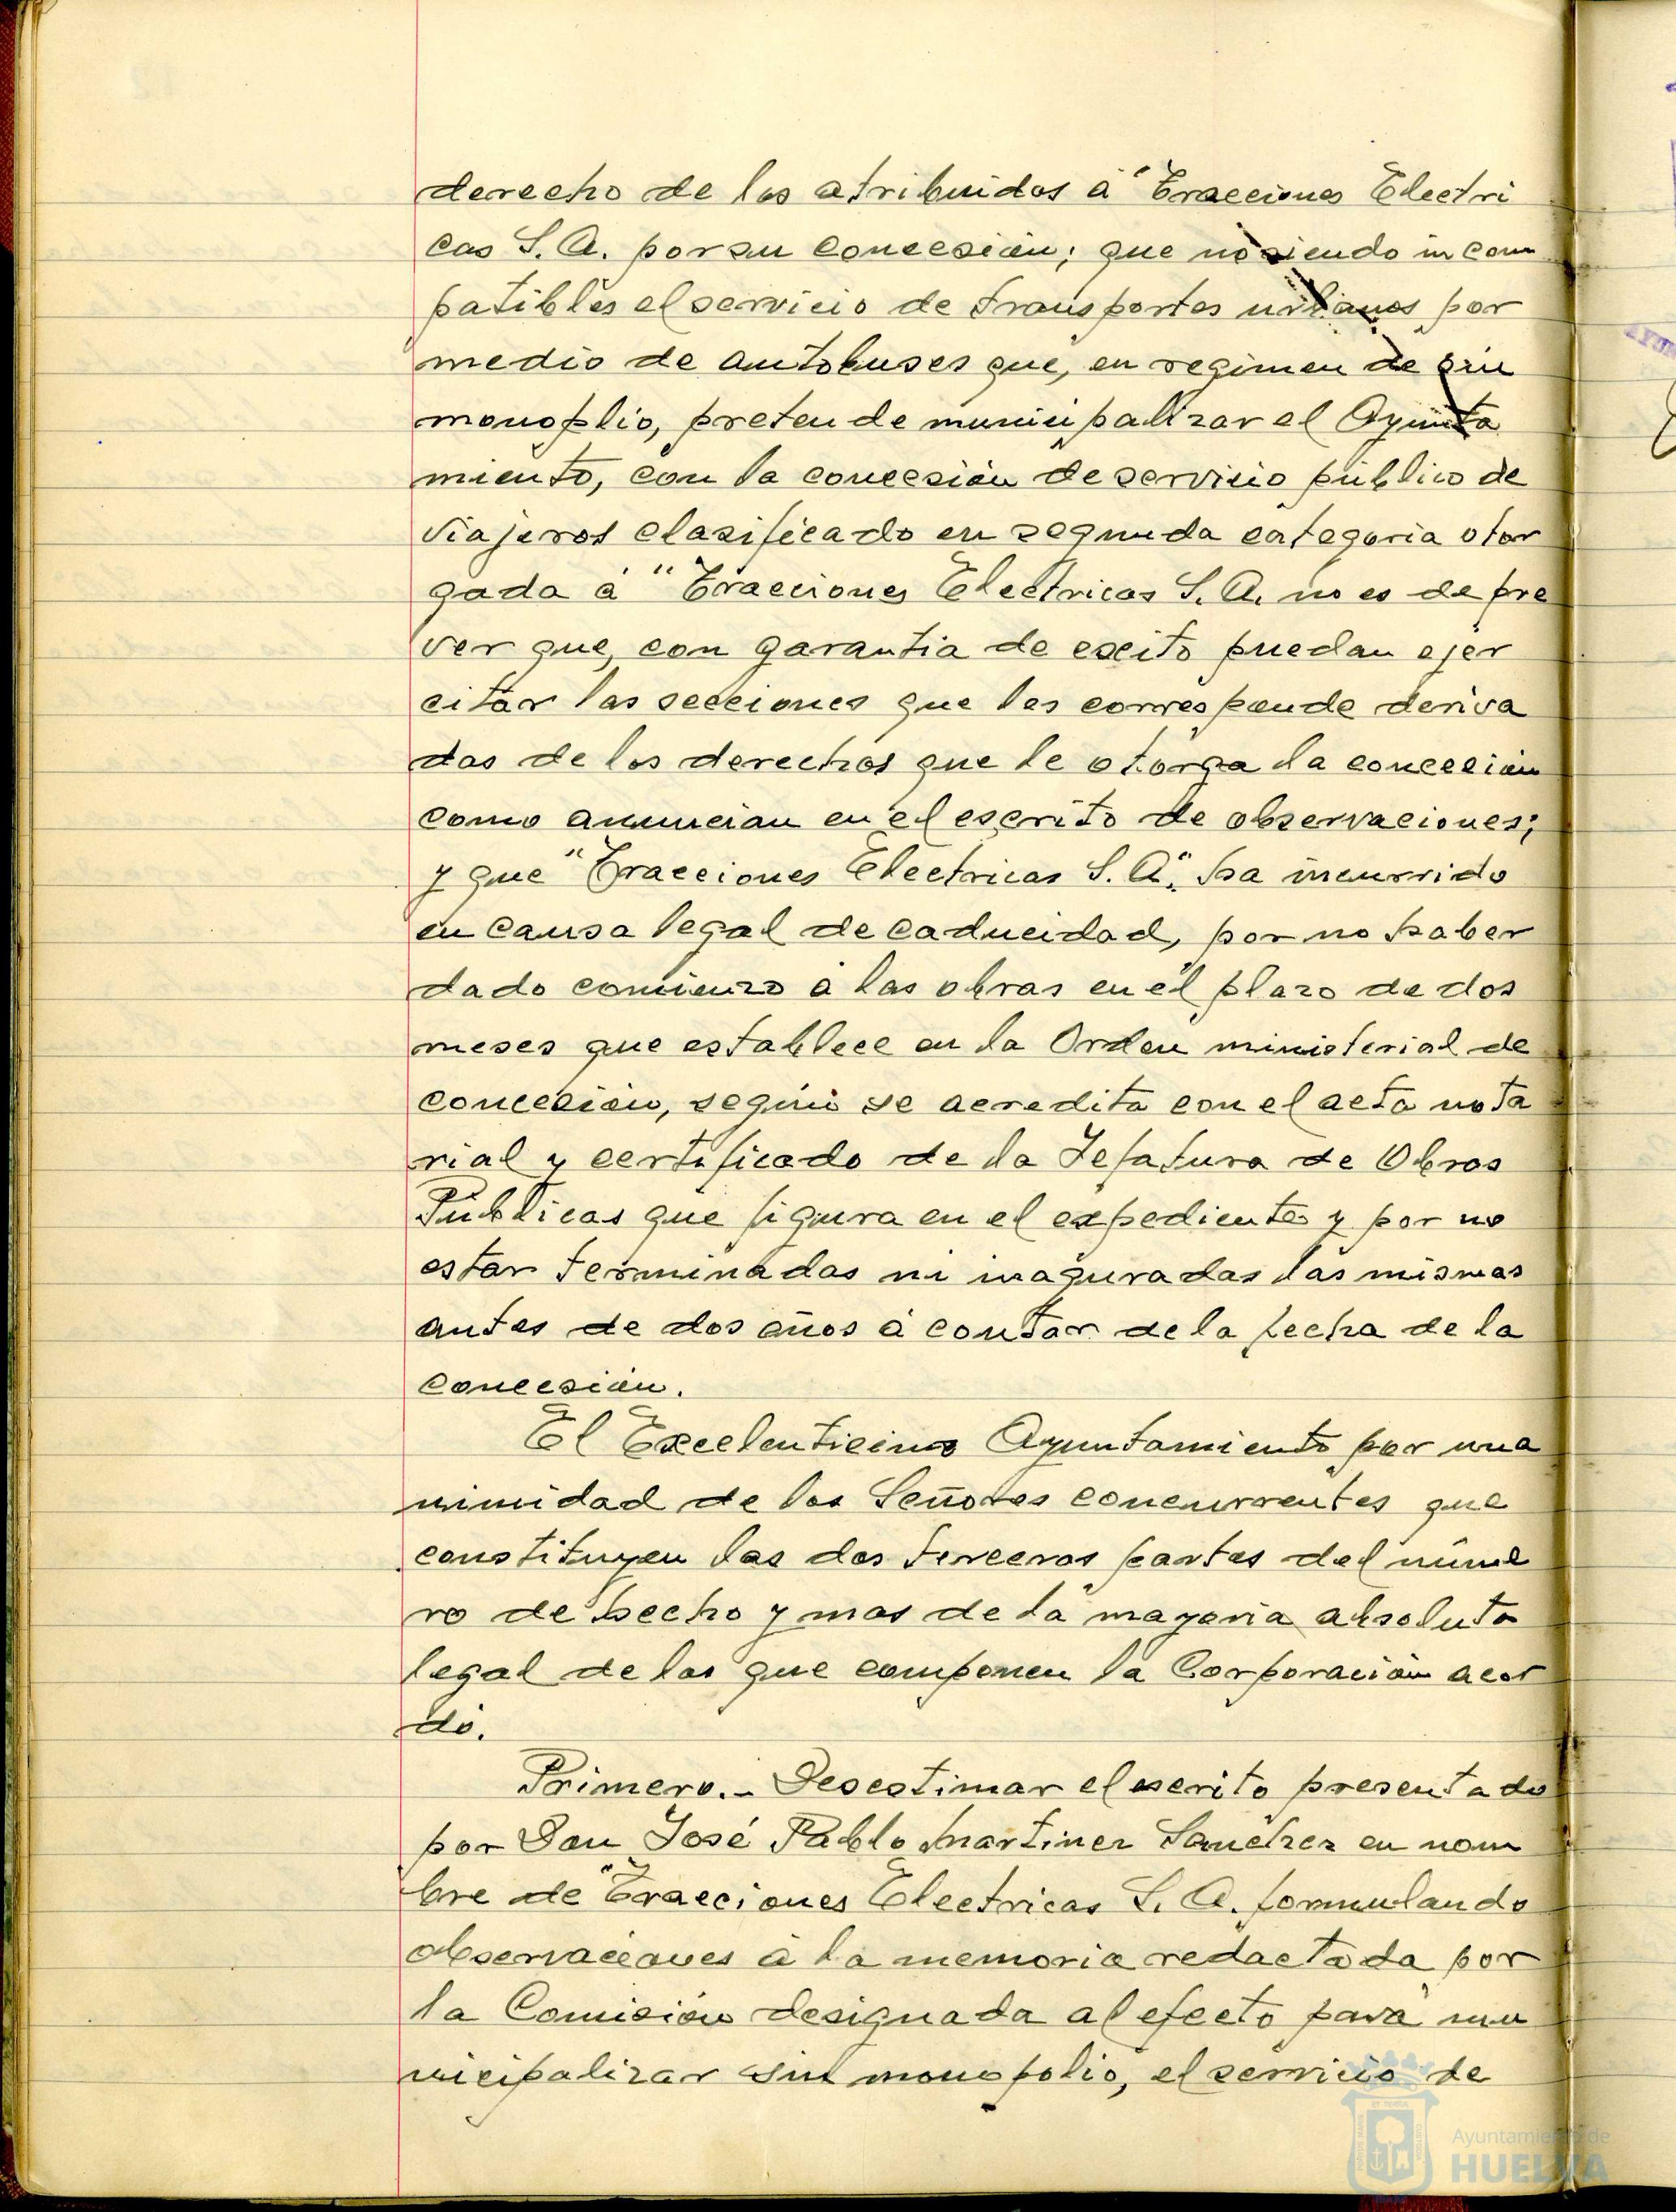 derecho de los atribuidos á "Tracciones Electri
cas S. A. por su concesión; que no siendo in com
patibles el servicio de transportes urbanos por
medio de autobuses que, en regimen de sin
monoplio, pretende municipalizar el Ayunta
miento, con la concesión de servicio público de
viajeros clasificado en segunda categoria otor
gada á "Tracciones Electricas S. A. no es de pre
ver que, con garantia de exito puedan ejer
citar las secciones que les corresponde deriva
das de los derechos que le otorga la concesión
como anuncian en el escrito de observaciones;
y que "Tracciones Electricas S. A." ha incurrido
en causa legal de caducidad, por no haber
dado comienzo a las obras en el plazo de dos
meses que establece en la Orden ministerial de
concesión, según se acredita con el acta nota
rial y certificado de la Jefatura de Obras
Públicas que figura en el expediente y por no
estar terminadas ni inaguradas las mismas
antes de dos años á contar de la fecha de la
concesión.
El Excelentisimo Ayuntamiento por una
nimidad de los Señores concurrentes que
constituyen las dos terceras partes del núme
ro de hecho y mas de la mayoria absoluta
legal de los que componen la Corporación acor
dó.
Primero.- Desestimar el escrito presentado
por Don José Pablo Martinez Sanchez en nom
bre de "Tracciones Electricas S. A. formulando
observaciones á la memoria redactada por
la Comisión designada al efecto para mu
nicipalizar sin monopolio, el servicio de
Ayuntamiento de
HUELVA